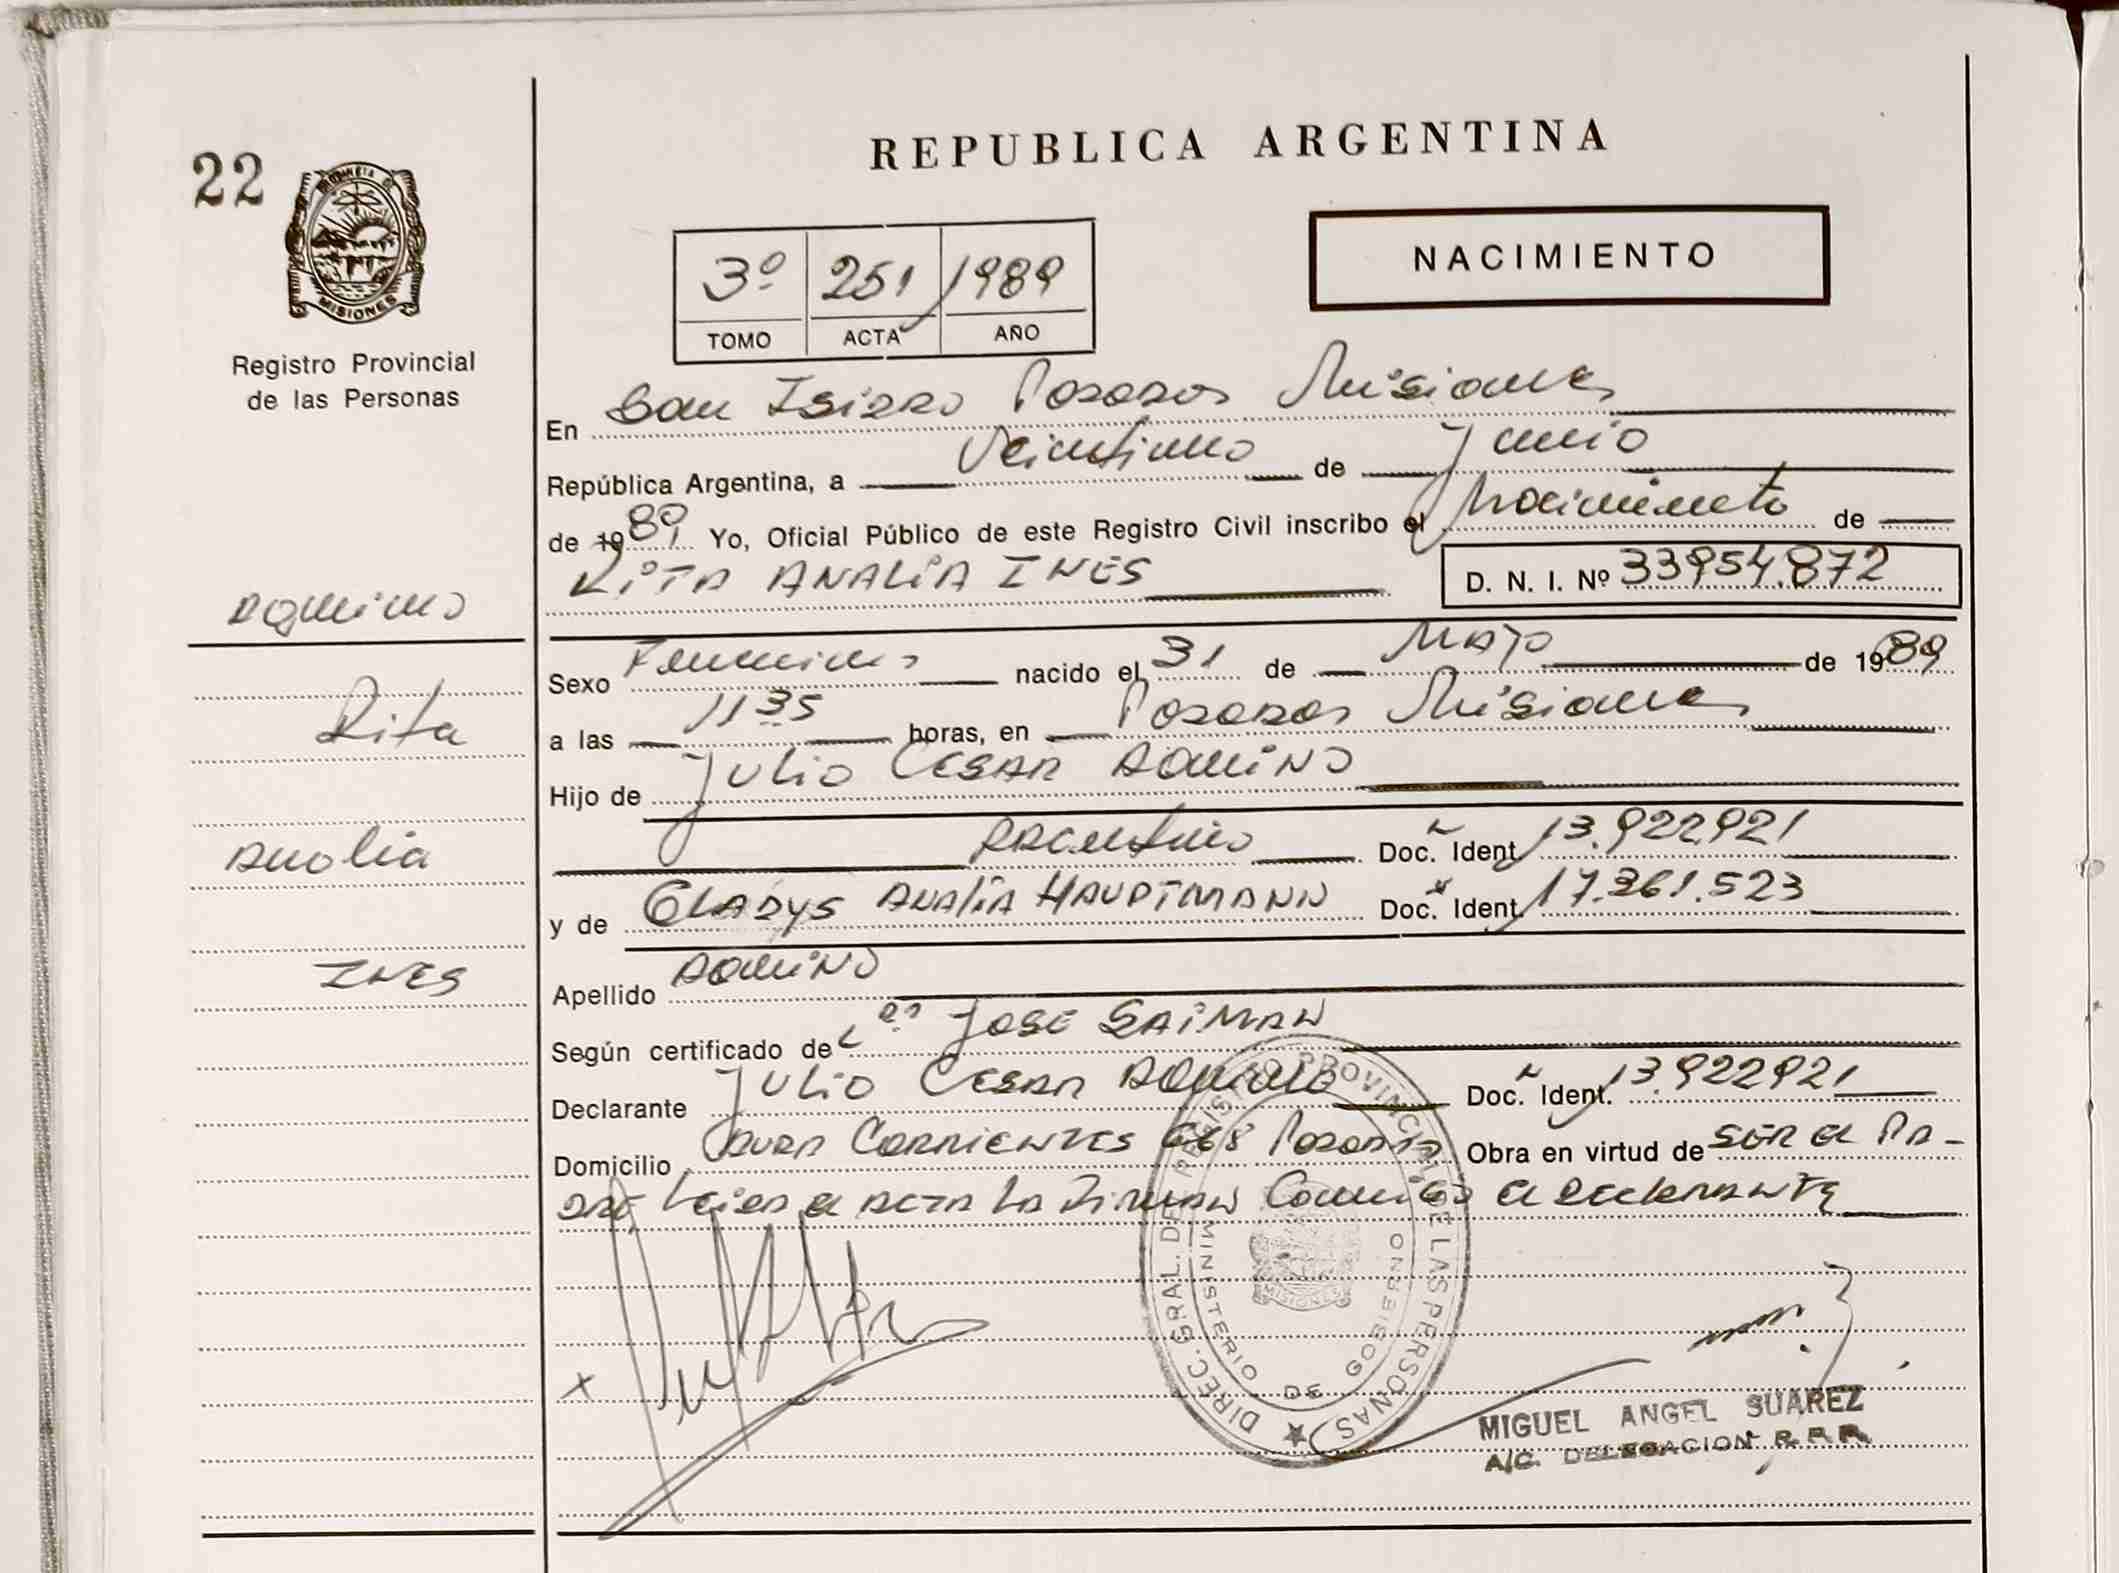 22
PROVINCIA DE
MISIONES
Registro Provincial
de las Personas
REPUBLICA ARGENTINA
NACIMIENTO
3º 251 1989
TOMO ACTA AÑO
En San Isidro Posadas Misiones
República Argentina, a Veintiuno de Junio
de 1989 Yo, Oficial Público de este Registro Civil inscribo el Nacimiento de
RITA ANALIA INES
D. N. I. Nº 33954.872
Aquino
Rita
Analia
INES
Sexo Femenino nacido el 31 de MAYO de 1989
a las 11 35 horas, en Posadas Misiones
Hijo de JULIO CESAR AQUINO
Argentino Doc. Ident. 13.922921
y de GLADYS ANALIA HAUPTMANN Doc. Ident. 17.361.523
Apellido AQUINO
Según certificado de JOSE SAIMAN
Declarante JULIO CESAR AQUINO Doc. Ident. 13.922921
Domicilio CORRIENTES 668 Posadas Obra en virtud de SER el PA-
DRE Leida el ACTA LA FIRMAN Conmigo el declarante
DIREC. GRAL. DEL REGISTRO PROVINCIAL DE LAS PERSONAS
MINISTERIO DE GOBIERNO
MISIONES
MIGUEL ANGEL SUAREZ
A/C. DELEGACION